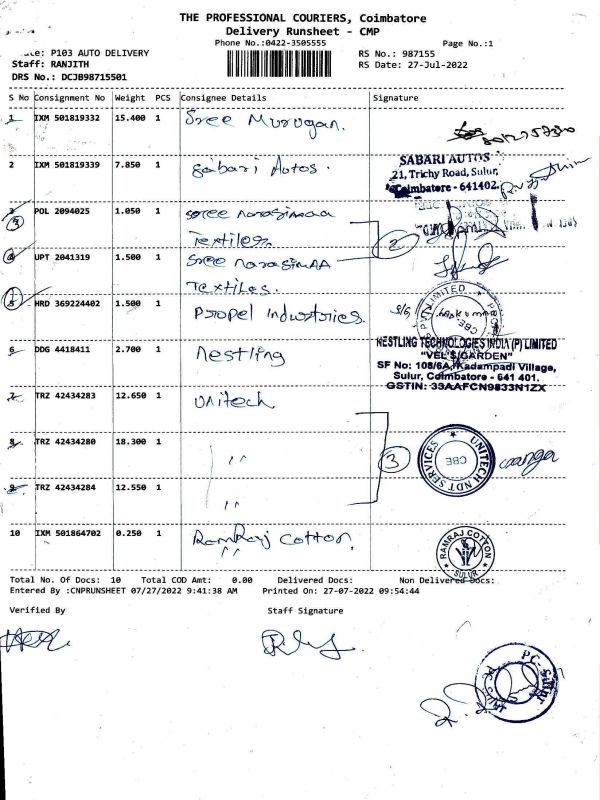 THE PROFESSIONAL COURIERS, Coimbatore
Delivery Runsheet - CMP
Phone No.:0422-3505555
Page No.:1
P103 AUTO DELIVERY
RS No.: 987155
Staff: RANJITH
RS Date: 27-Jul-2022
DRS No.: DCJB98715501
S No Consignment No Weight PCS Consignee Details Signature
1 IXM 501819332 15.400 1 Sree Murugan.
2 IXM 501819339 7.850 1 Sabari Autos.
SABARI AUTOS
21, Trichy Road, Sulur,
Coimbatore - 641402.
3 POL 2094025 1.050 1 Sree narasimaa
Textiles.
2
4 UPT 2041319 1.500 1 Sree narasimAA
Textiles.
5 HRD 369224402 1.500 1 Propel Industries.
6 DDG 4418411 2.700 1 Nestling
NESTLING TECHNOLOGIES INDIA (P) LIMITED
"VEL'S GARDEN"
SF No: 108/6A, Kadampadi Village,
Sulur, Coimbatore - 641 401.
GSTIN: 33AAFCN9833N1ZX
7 TRZ 42434283 12.650 1 Unitech
8 TRZ 42434280 18.300 1 ,,
3
UNITECH NDT SERVICES
CBE
9 TRZ 42434284 12.550 1 ,,
10 IXM 501864702 0.250 1 RamRaj Cotton
RAMRAJ COTTON
SULUR
Total No. Of Docs: 10 Total COD Amt: 0.00 Delivered Docs: Non Delivered Docs:
Entered By :CNPRUNSHEET 07/27/2022 9:41:38 AM Printed On: 27-07-2022 09:54:44
Verified By Staff Signature